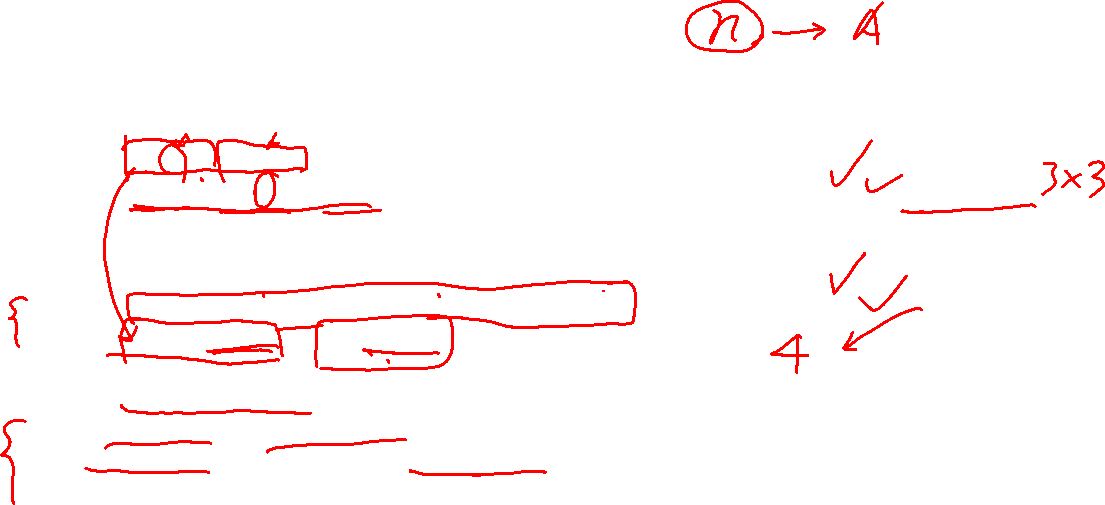 n → A
3×3
4